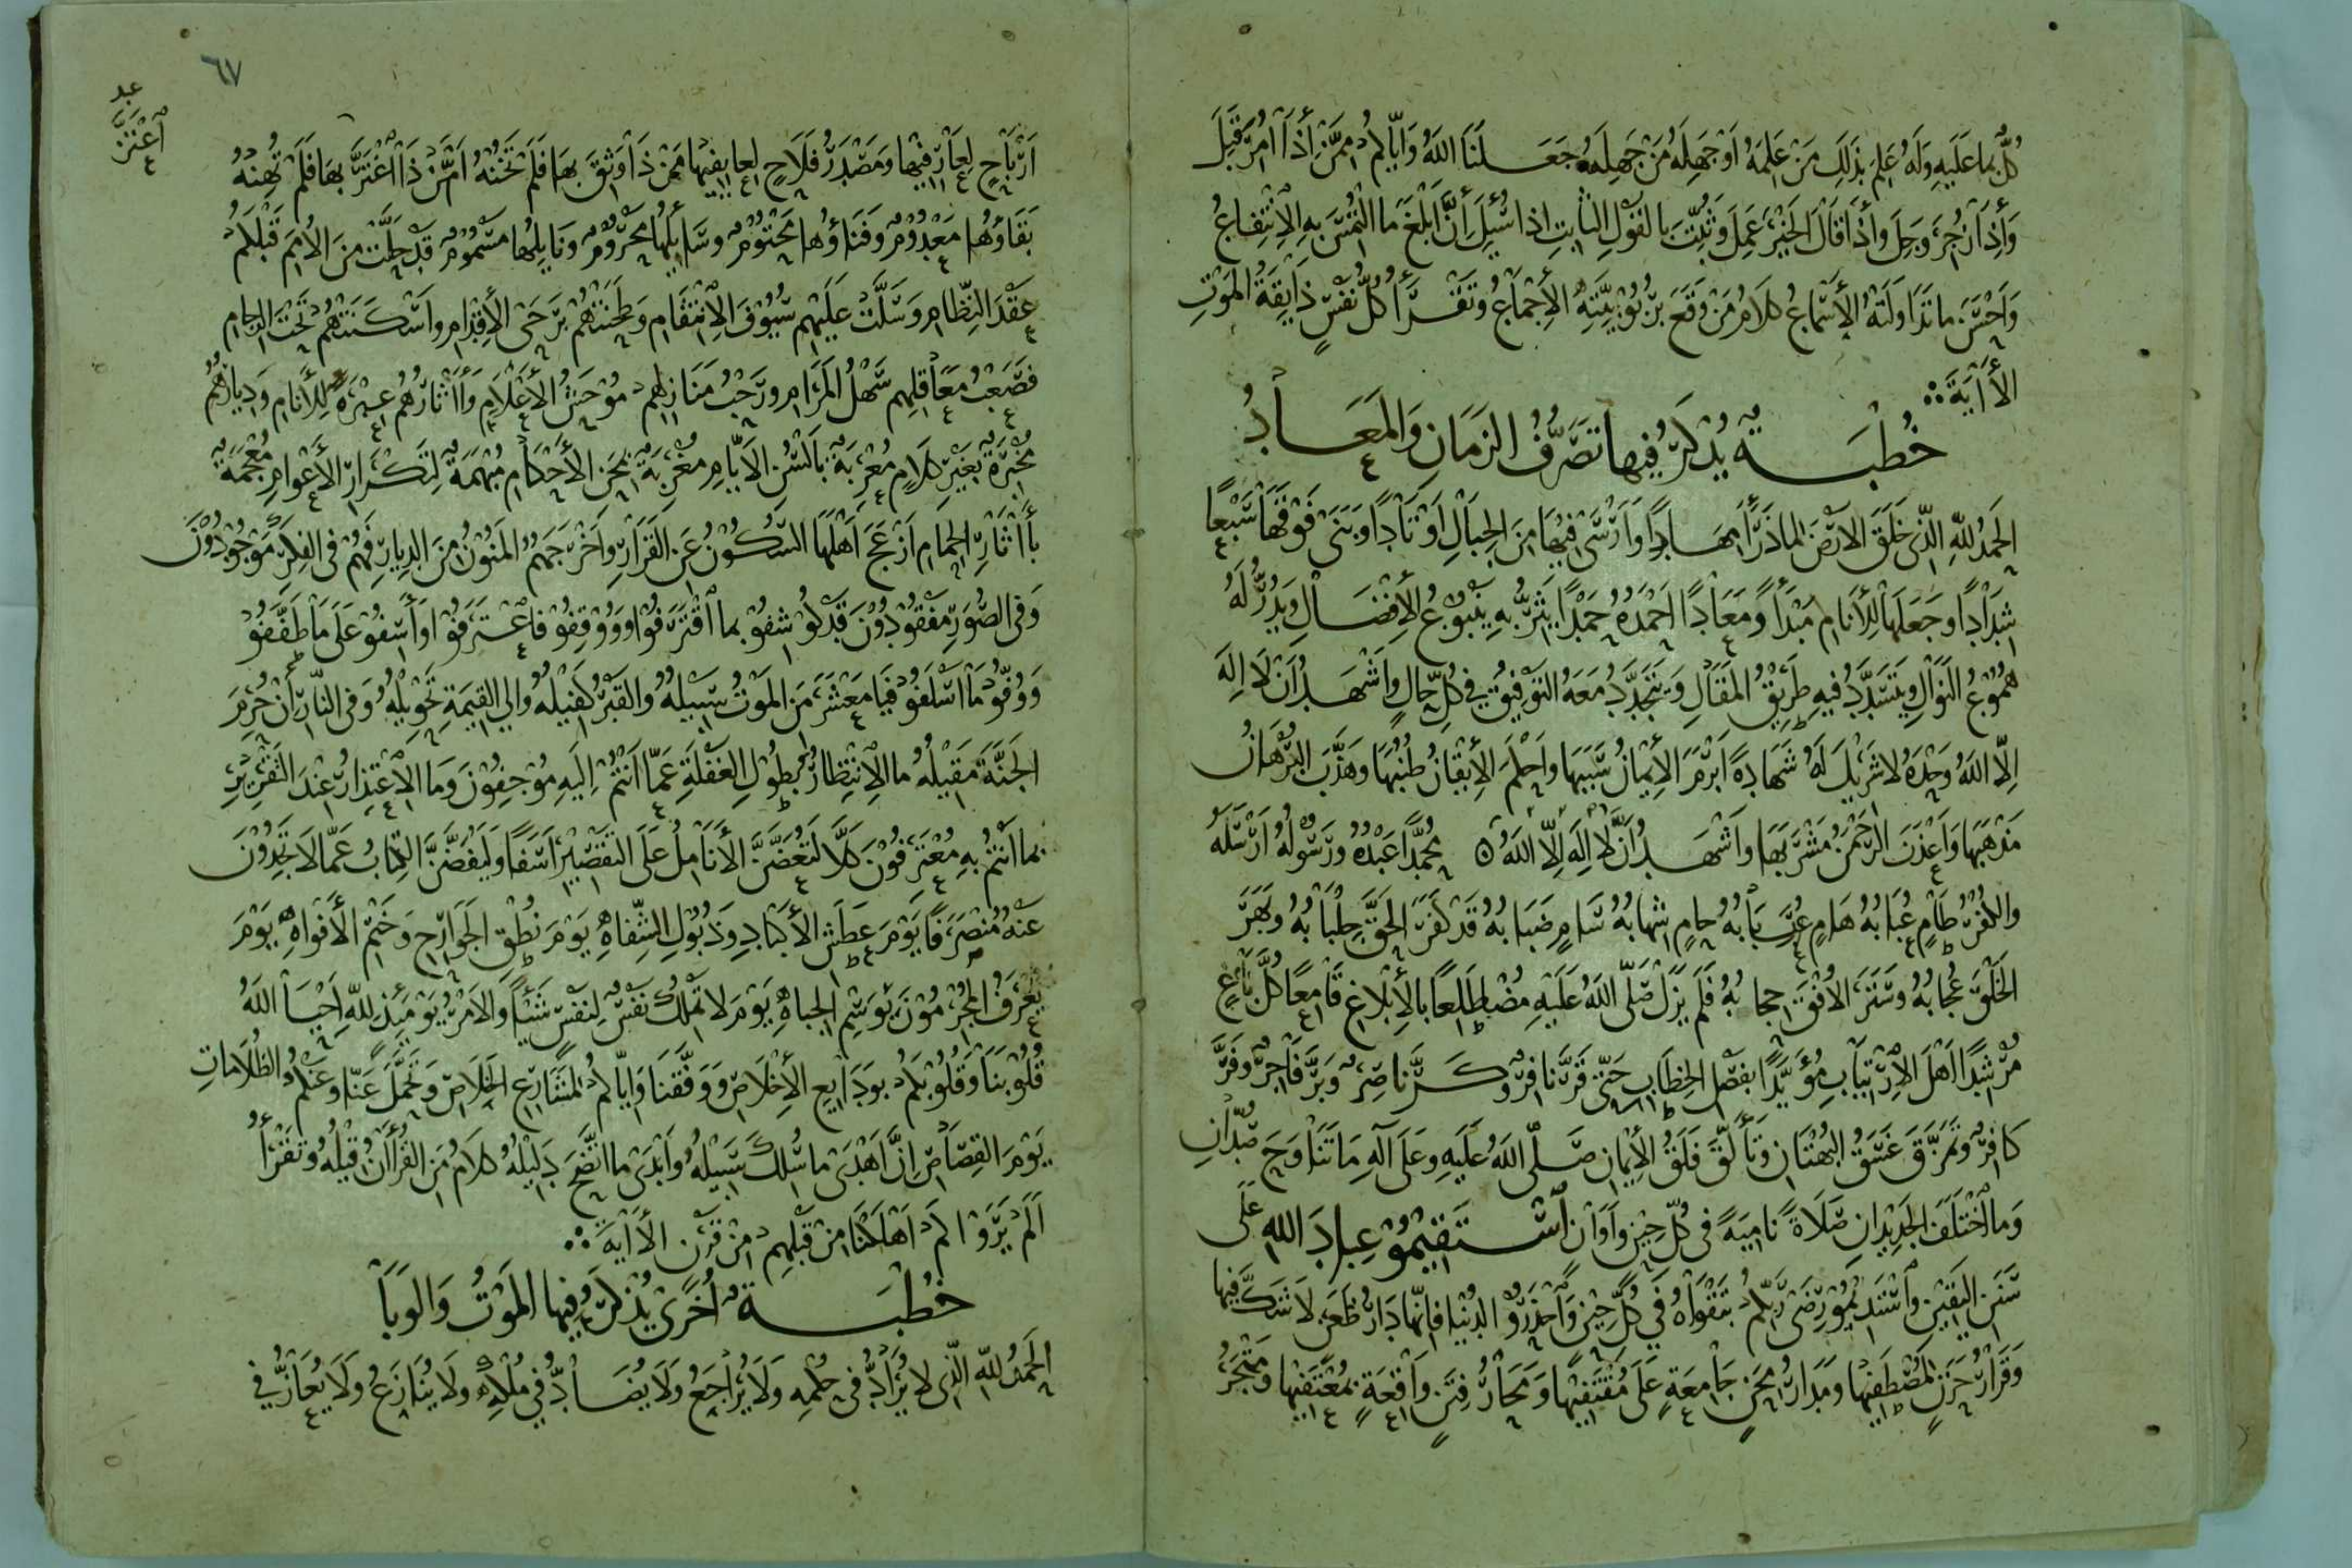 كُلٌّ بما عليهِ وَلَهُ عَلِمَ بِذَلِكَ مَنْ عَلِمَهُ اَوْ جَهِلَهُ مَنْ جَهِلَهُ جَعَلَنَا اللهُ وَاِيَّاكُمْ مِمَّنْ اِذَا اُمِرَ قَبِلَ
وَاِذَا زُجِرَ وَجِلَ وَاِذَا قَالَ الخَيْرَ عَمِلَ وَثُبِّتَ بالقَوْلِ الثابِتِ اِذا سُئِلَ اِنَّ اَبْلَغَ ما الْتُمِسَ بِهِ الاِنْتِفاعُ
وَاَحْسَنَ ما تَدَاوَلَتْهُ الأَسْماعُ كلامُ مَنْ وَقَعَ بِرُبُوْبِيَّتِهِ الاِجْماعُ وتَقْرَأُ كُلُّ نَفْسٍ ذَايِقَةُ المَوْتِ
الأَايَةَ
خُطْبَةٌ يُذْكَرُ فِيها تَصَرُّفُ الزَمَانِ وَالمَعَادُ
الحَمْدُ للهِ الَّذِي خَلَقَ الارْضَ لما ذَرَأَ مِهَاداً وَاَرْسَى فِيْهَا مِنَ الجِبَالِ اَوْتَاداً وَبَنَى فَوْقَهَا سَبْعاً
شِدَاداً وجَعَلَهَا لِلأَنَامِ مَبْدَأً وَمَعَاداً اَحْمَدُهُ حَمْداً يَثِرُّ بِهِ يَنْبُوْعُ الاِفْضَالِ وَيَدُرُّ لَهُ
هُمُوْعُ النَوَالِ ويَتَسَدَّدُ فيهِ طَرِيْقُ المَقَالِ وَيَتَجَدَّدُ مَعَهُ التَوْفِيْقُ فِي كُلِّ حَالٍ وَاَشْهَدُ اَنْ لَا اِلَهَ
اِلّا اللهُ وَحْدَهُ لا شَرِيْكَ لَهُ شَهَادَةً اَبْرَمَ الاِيْمَانُ سَبَبَهَا وَاَحْكَمَ الاِيْقَانُ طُنُبَهَا وَهَذَّبَ البُرْهَانُ
مَذْهَبَهَا وَاَعْذَبَ الرَحْمَنُ مَشْرَبَهَا وَاَشْهَدُ اَنَّ لَا اِلَهَ اِلَّا اللهُ مُحَمَّداً عَبْدُهُ ورَسُوْلُهُ اَرْسَلَهُ
والكُفْرُ طَامٍ عُبَابُهُ هَامٍ رَبَابُهُ حامٍ شِهابُهُ سَامٍ ضَبَابُهُ قَدْ كَفَرَ الحَقَّ جِلْبَابُهُ وبَهَرَ
الخَلْقَ عُجابُهُ وسَتَرَ الاُفُقَ حِجابُهُ فَلَمْ يَزَلْ صَلَّى اللهُ عَلَيْهِ مُضْطَلِعاً بالاِبْلاغِ قَامِعاً كُلَّ بَاغٍ
مُرْشِداً اَهْلَ الاِرْتِيَابِ مُؤَيَّداً بفَصْلِ الخِطَابِ حَتَّى قَرَّ نافِرٌ وكَرَّ ناصِرٌ وَبَرَّ فَاجِرٌ وفَرَّ
كَافِرٌ وتَمَزَّقَ غَسَقُ البُهْتَانِ وَتَأَلَّقَ فَلَقُ الاِيْمانِ صَلَّى اللهُ عَلَيهِ وعَلَى آلِهِ مَا تَنَاوَحَ صُدَّانِ
وَما اخْتَلَفَ الجَدِيْدَانِ صَلَاةً نامِيَةً فِى كُلِّ حِيْنٍ وَاَوَانٍ اسْتَقِيْمُوْا عِبادَ اللهِ عَلَى
سَنَنِ اليَقِيْنِ وَاسْتَدِيْمُوْا رِضَى رَبِّكُمْ بتَقْوَاهُ فِي كُلِّ حِيْنٍ وَاحْذَرُوْا الدُنْيَا فَاِنَّهَا دَارُ ظَعَنٍ لا شَكَّ فِيها
وَقَرَارُ حَزَنٍ لمُصْطَفِيْهَا ومَدَارُ مِحَنٍ جَامِعَةٍ عَلَى مُقْتَفِيْهَا وَمَحَارُ فِتَنٍ وَاقِعَةٍ بمُعْتَفِيْها ومَتْجَرُ
٦٧
اَرْبَاحٍ لعِارِفيْها ومَصْدَرُ فَلَاحٍ لعايِفيها مَنْ ذَا وَثِقَ بهَا فَلَمْ تَخُنْهُ اَمْ مَنْ ذَا اغْتَرَّ بِهَا فلَمْ تُهِنْهُ
اعْتَزَّ
بَقَاؤُهَا مَعْدُوْمٌ وَفَنَاؤُها مَحْتُوْمٌ وسَايِلُهَا مَحْرُوْمٌ وَنَايِلُهَا مَسْمُوْمٌ قَدْ حَلَّتْ مِنَ الاُمَمِ قَبْلَكُمْ
عَقْدَ النِّظَامِ وسَلَّتْ عَلَيْهِم سُيُوْفَ الاِنْتِقَامِ وَطَحَنَتْهُمْ بِرَحَى الأِقْدَامِ وَاَسْكَنَتْهُمْ تَحْتَ الرِجامِ
فَصَعْبُ مَعَاقِلِهِم سَهْلُ المَرَامِ ورَحْبُ مَنَازِلِهِمْ مُوْحَشُ الأَعْلَامِ وَاَاثَارُهُمْ عِبْرَةٌ لِلأَنَامِ وَدِيارُهُمْ
مُخْبِرَةٌ بِغَيْرِ كَلَامٍ مُعْرِبَةٌ بِاَلْسُنِ الاَيَّامِ مُغْرِبَةٌ بمِحَنِ الاَحْكَامِ مُبْهَمَةٌ لِتَكْرَارِ الأَعْوَامِ مُعْجَمَةٌ
بأَاثَارِ الحِمَامِ اَزْعَجَ اَهْلَهَا السُّكُوْنُ عَنِ القَرَارِ وَاَخْرَجَهُمُ المَنُوْنُ مِنَ الدِيارِ فَهُمْ فِى الفِكَرِ مَوْجُوْدُوْنَ
وَفِى الصُّوَرِ مَفْقُوْدُوْنَ قَدْ كُوْشِفُوْا بما اقْتَرَفُوْا وَوُقِفُوْا فَاعْتَرَفُوْا وَاَسِفُوْا عَلَى مَا طَفَّفُوْا
وَوُفُّوْا مَا اَسْلَفُوْا فَيَا مَعْشَرَ مَنِ المَوْتُ سَبِيلُهُ وَالقَبْرُ كَفِيْلُهُ وَاِلي القِيٰمَةِ تَحْوِيْلُهُ وَفى النَّارِ اَنْ حُرِمَ
الجَنَّةَ مَقِيْلُهُ ما الاِنْتِظَارُ بطُوْلِ الغَفْلَةِ عَمَّا اَنْتُمْ اِلَيْهِ مُوْجِفُوْنَ وَمَا الاِعْتِذَارُ عِنْدَ التَقْرِيْرِ
بما اَنتمْ بِهِ مُعْتَرِفُوْنَ كَلَّا لَتُعَضَّنَّ الأَنَامِلُ عَلَى التَقْصِيْرِ اَسَفاً وَلَيُفَضَّنَّ الكِتَابُ عَمَّا لَا تَجِدُوْنَ
عَنْهُ مُنْصَرَفاً يَوْمَ عَطَشِ الأَكْبَادِ وَذُبُوْلِ الشِّفَاهِ يَوْمَ نُطْقِ الجَوَارِحِ وَخَتْمِ الاَفْوَاهِ يَوْمَ
يُعْرَفُ المُجْرِمُوْنَ بوَسْمِ الجِبَاهِ يَوْمَ لَا تَمْلِكُ نَفْسٌ لِنَفْسٍ شَيْئاً وَالاَمْرُ يَوْمَئِذٍ لِلّهِ اَحْيَا اللهُ
قُلُوْبَنَا وَقُلُوْبَكُمْ بوَدَايِعِ الاِخْلَاصِ وَوَفَّقَنَا وَاِيَّاكُمْ لمَشَارِعِ الخَلَاصِ وَتَحَمَّلَ عَنَّا وعَنْكُمُ الظُلَامَاتِ
يَوْمَ القِصَاصِ اِنَّ اَهْدَى ما سُلِكَ سَبِيْلُهُ وَاَبْدَى ما اتَّضَحَ دَلِيْلُهُ كلَامُ مَنِ القُرْأَانُ قِيْلُهُ وَتَقْرَأُ
اَلَمْ يَرَوْا كَمْ اَهْلَكْنَا مِنْ قَبْلِهِمْ مِنْ قَرْنٍ الأَايَةَ
خُطْبَةٌ اُخْرَى يُذْكَرُ فِيها المَوْتُ وَالوَبَأُ
الحَمْدُ للهِ الَّذِي لا يُرَادُّ فِى حُكْمِهِ وَلَا يُرَاجَعُ وَلَا يُضَادُّ فِي مُلْكِهِ وَلا يُنَازَعُ وَلَا يُعَازُّ في